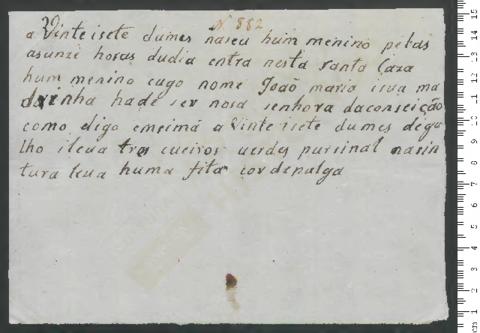 39 N 882
a Vinteisete dumes naseu hum menino pelas
asunze horas dudia entra nesta santa Caza
hum menino cugo nome João mario isua ma
drinha hade ser nosa senhora daconseição
como digo emsimá a Vinte isete dumes degu
lho ileva tres cueiros verdes pursinal nasin
tura leva huma fita cordepulga